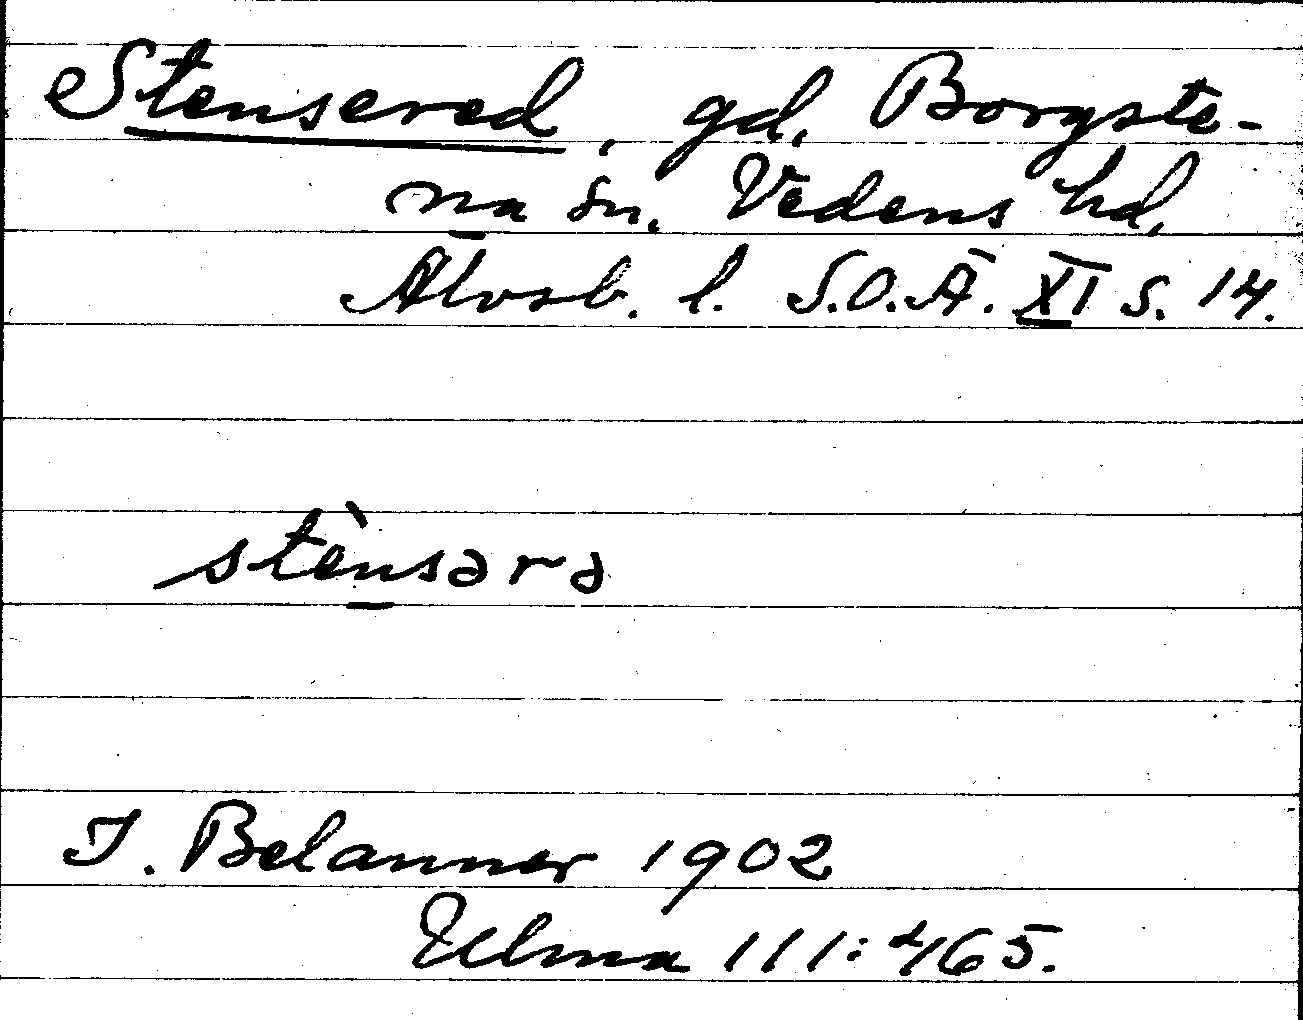 Stensered, gd, Borgste-
na sn. Vedens hd,
Älvsb. l. S.O.Ä. XI s. 14.
stènsərə
T. Belanner 1902
Ulma 111:465.